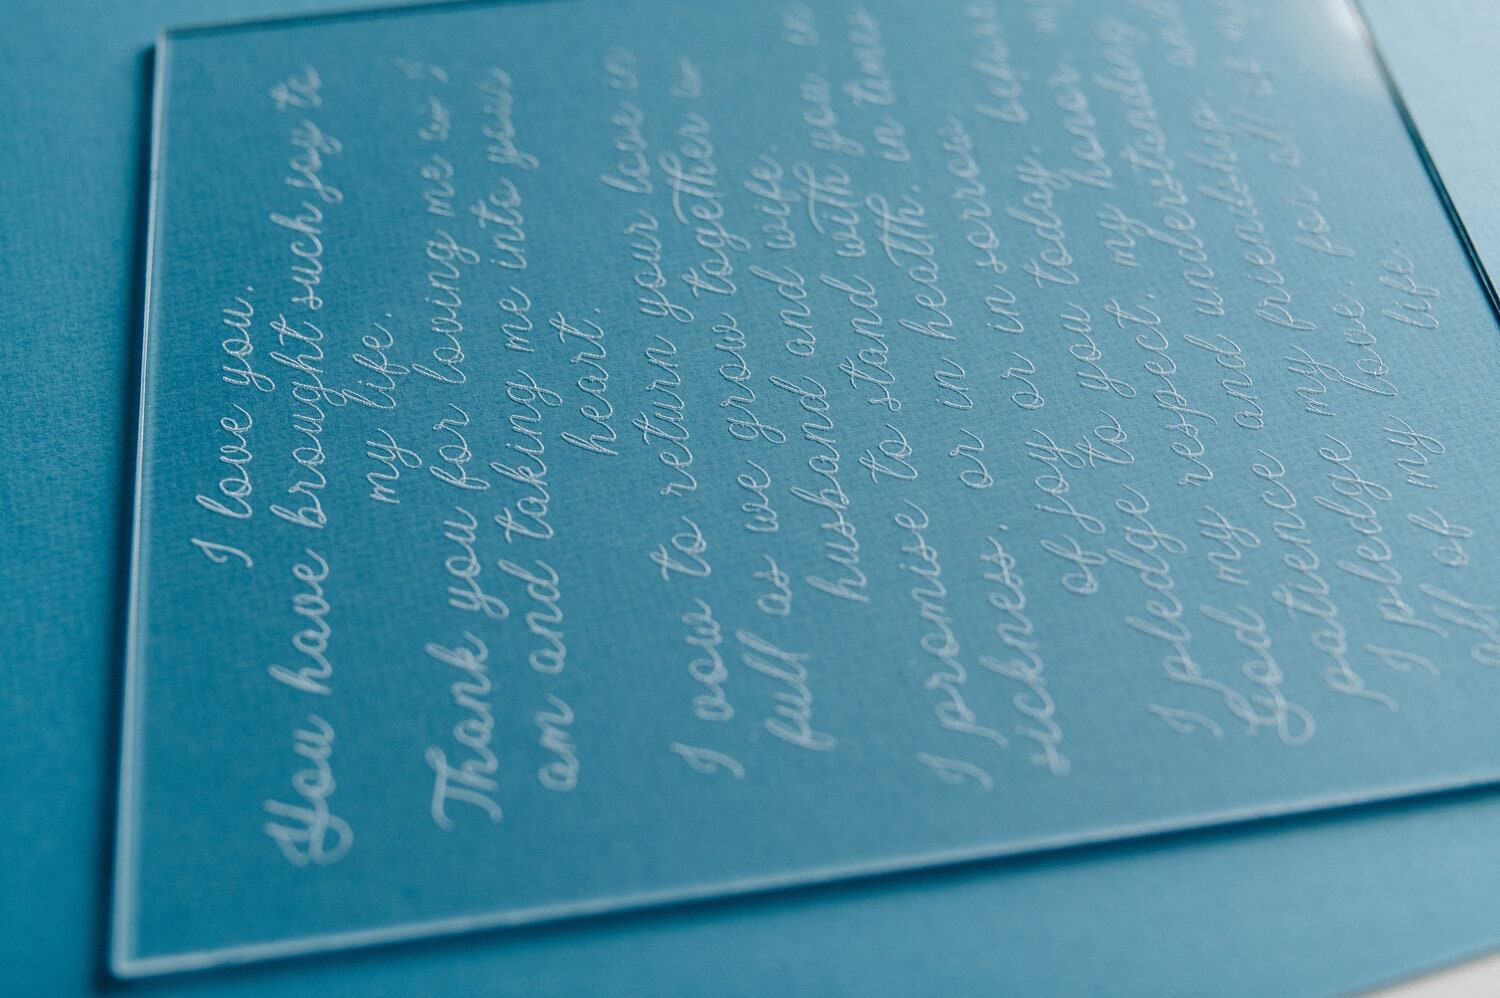 I love you.
You have brought such joy to
my life.
Thank you for loving me as I
am and taking me into you
heart.
I vow to return your love in
full as we grow together as
husband and wife.
I promise to stand with you in
sickness or in heath, in times
of joy or in sorrow
I pledge to you today, before
God my respect, my honor, my
patience and understanding
I pledge my friendship, and
all of my love, for all of my
life